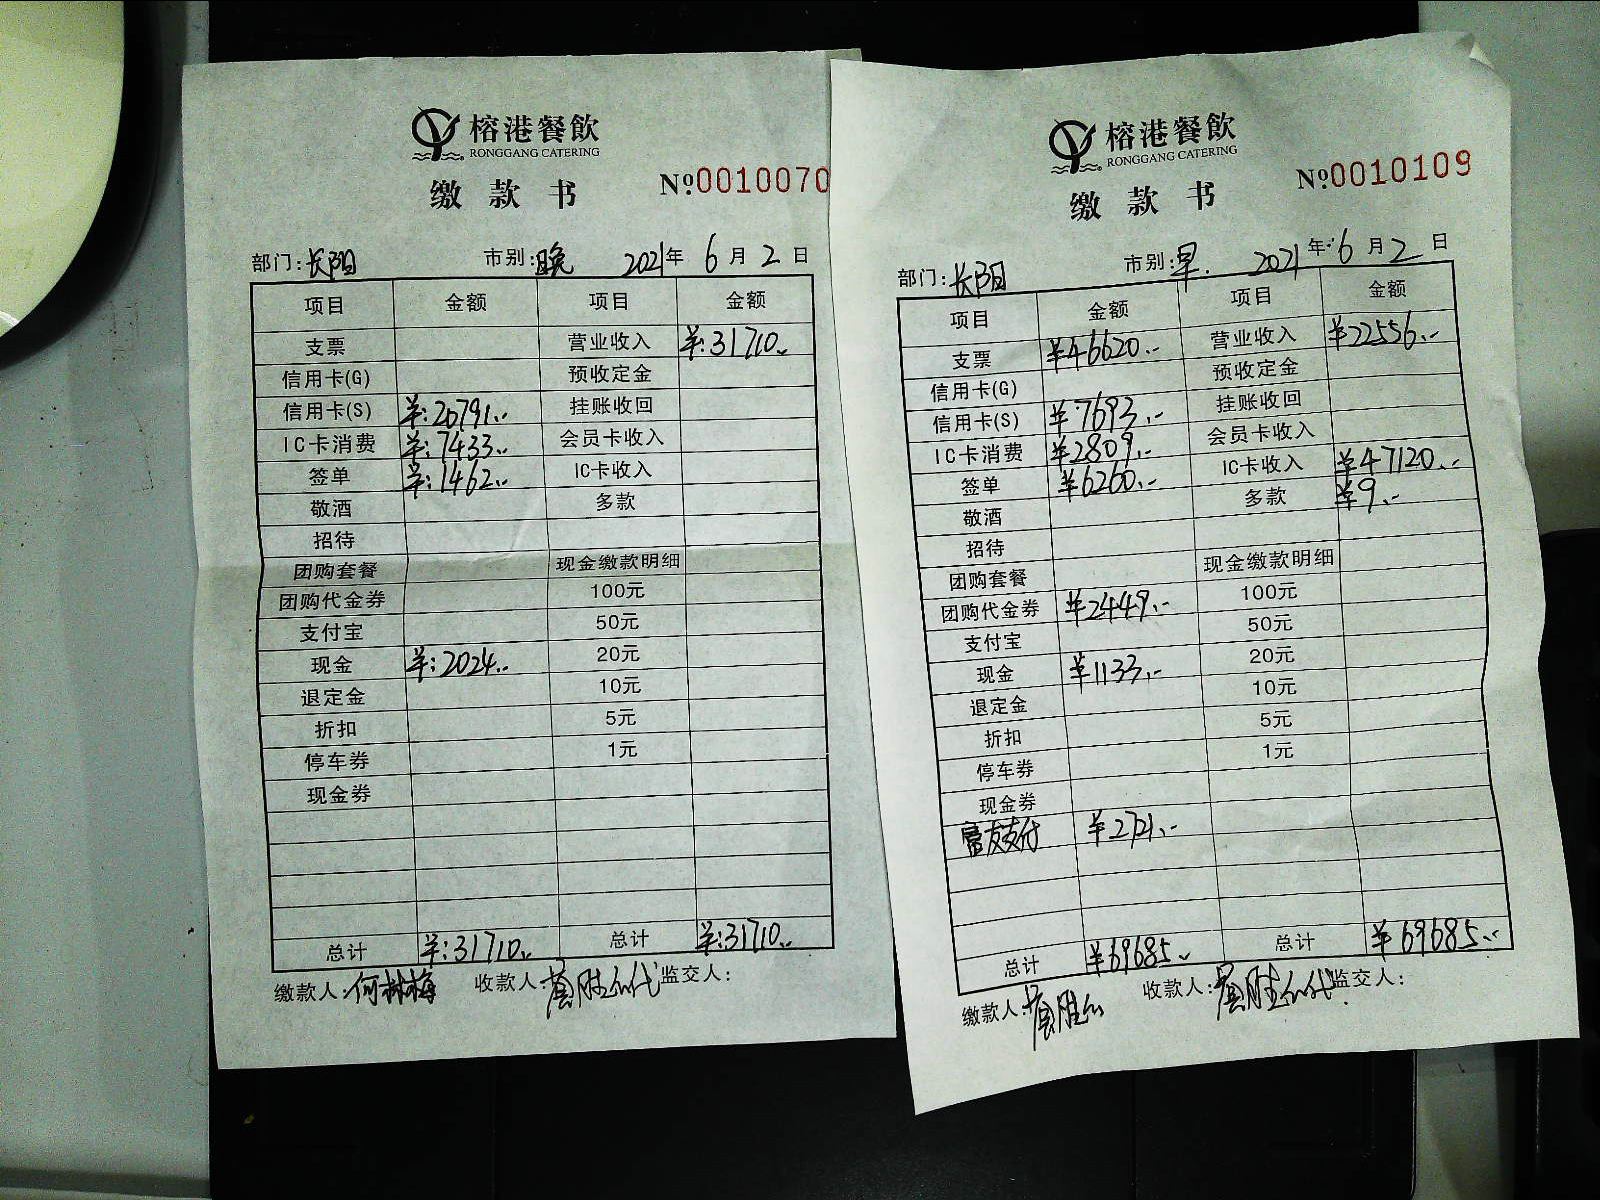 榕港餐飲
RONGGANG CATERING
缴款书 №0010070
部门:长阳 市别:晚 2021年6月2日
项目 金额 项目 金额
支票 营业收入 ¥:31710..
信用卡(G) 预收定金
信用卡(S) ¥:20791.. 挂账收回
IC卡消费 ¥:7433.. 会员卡收入
签单 ¥:1462.. IC卡收入
敬酒 多款
招待
团购套餐 现金缴款明细
团购代金券 100元
支付宝 50元
现金 ¥:2024.. 20元
退定金 10元
折扣 5元
停车券 1元
现金券
总计 ¥:31710.. 总计 ¥:31710..
缴款人:何林梅 收款人: 监交人:
榕港餐飲
RONGGANG CATERING
缴款书 №0010109
部门:长阳 市别:早. 2021年6月2日
项目 金额 项目 金额
支票 ¥46620.- 营业收入 ¥22556.-
信用卡(G) 预收定金
信用卡(S) ¥7693.- 挂账收回
IC卡消费 ¥2809.- 会员卡收入
签单 ¥6260.- IC卡收入 ¥47120.-
敬酒 多款 ¥9.-
招待
团购套餐 现金缴款明细
团购代金券 ¥2449.- 100元
支付宝 50元
现金 ¥1133.- 20元
退定金 10元
折扣 5元
停车券 1元
现金券
富友支付 ¥2721.-
总计 ¥69685.- 总计 ¥69685.-
缴款人: 收款人: 监交人: